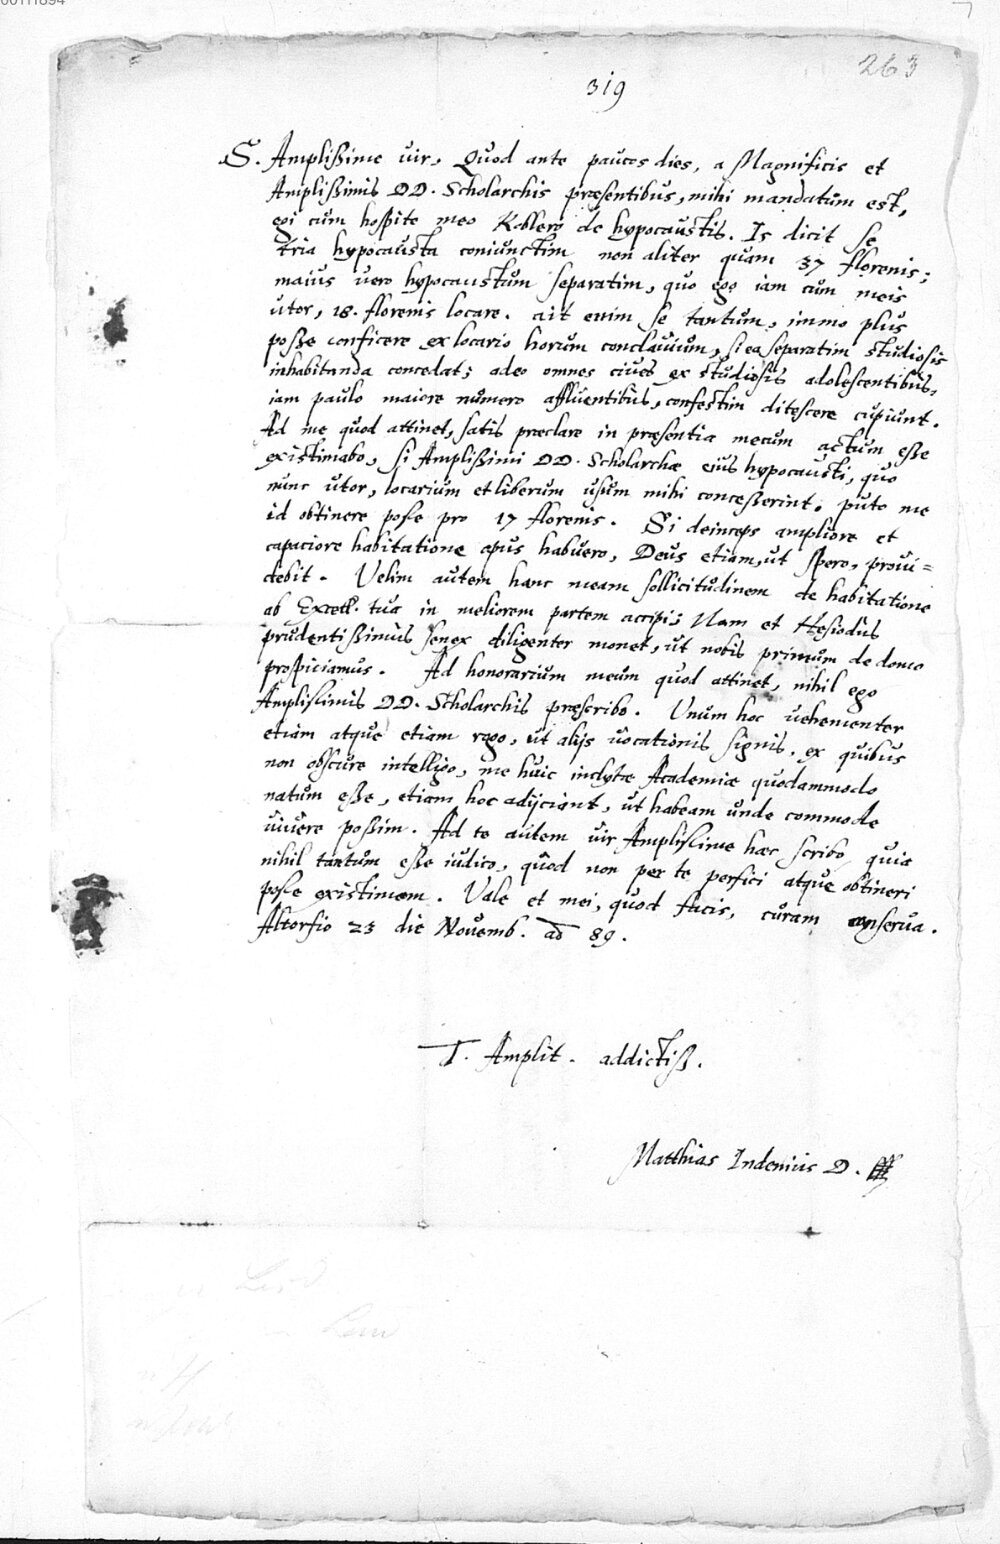 00111894
263
319
S. Amplißime vir, Quod ante paucos dies, a Magnificis et
Amplißimis DD. Scholarchis præsentibus, mihi mandatum est,
egi cum hospite meo Koblero de hypocaustis. Is dicit se
tria hypocausta coniunctim non aliter quam 37 florenis;
maius vero hypocaustum separatim, quo ego iam cum meis
utor, 18. florenis locare. ait enim se tantum, immo plus
poße conficere ex locario horum conclavium, si ea separatim studiosis
inhabitanda concedat; adeo omnes cives ex studiosis adolescentibus,
iam paulo maiore numero affluentibus, confestim ditescere cupiunt.
Ad me quod attinet, satis præclare in præsentia mecum actum eße
existimabo, si Amplißimi DD. Scholarchæ eius hypocausti, quo
nunc utor, locarium et liberum usum mihi conceßerint. puto me
id obtinere poße pro 17 florenis. Si deinceps ampliore et
capaciore habitatione opus habuero, Deus etiam, ut spero, provi=
debit. Velim autem hanc meam sollicitudinem de habitatione
ab Excell. tua in meliorem partem accipi; Nam et Hesiodus
prudentißimus senex diligenter monet, ut nobis primum de domo
prospiciamus. Ad honorarium meum quod attinet, nihil ego
Amplissimis DD. Scholarchis præscribo. Unum hoc vehementer
etiam atque etiam rogo, ut alijs vocationis signis, ex quibus
non obscure intelligo, me huic inclytæ Academiæ quodammodo
natum eße, etiam hoc adijciant, ut habeam unde commode
vivere poßim. Ad te autem vir Amplissime hæc scribo, quia
nihil tantum eße iudico, quod non per te perfici atque obtineri
posse existimem. Vale et mei, quod facis, curam conserva.
Altorfio 23 die Novemb. ao 89.
T. Amplit. addictiß.
Matthias Indenius D.